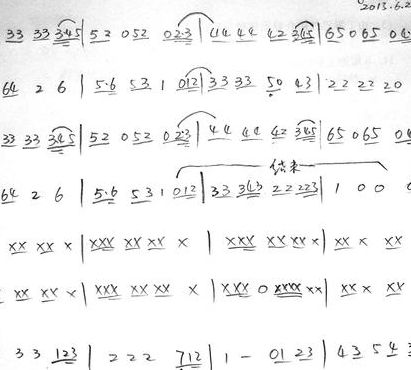 2013.6.2
33 33 345 | 52 052 023 | 44 44 42 345 | 65 065 04
64 2 6 | 5·6 53 1 012 | 333 50 43 | 22 22 20
33 33 345 | 52 052 023 | 44 44 42 345 | 65 065 04
结束
64 2 6 | 5·6 531 012 | 33 343 22 223 | 1 0 0
xx xx x | xxx xx xx x | xxx xx xx x | xx x xx
xx xx x | xxx xx xx x | xxx 0 xxxx xx | xx x xx
3 3 123 | 2 2 2 712 | 1 - 01 23 | 43 54 3